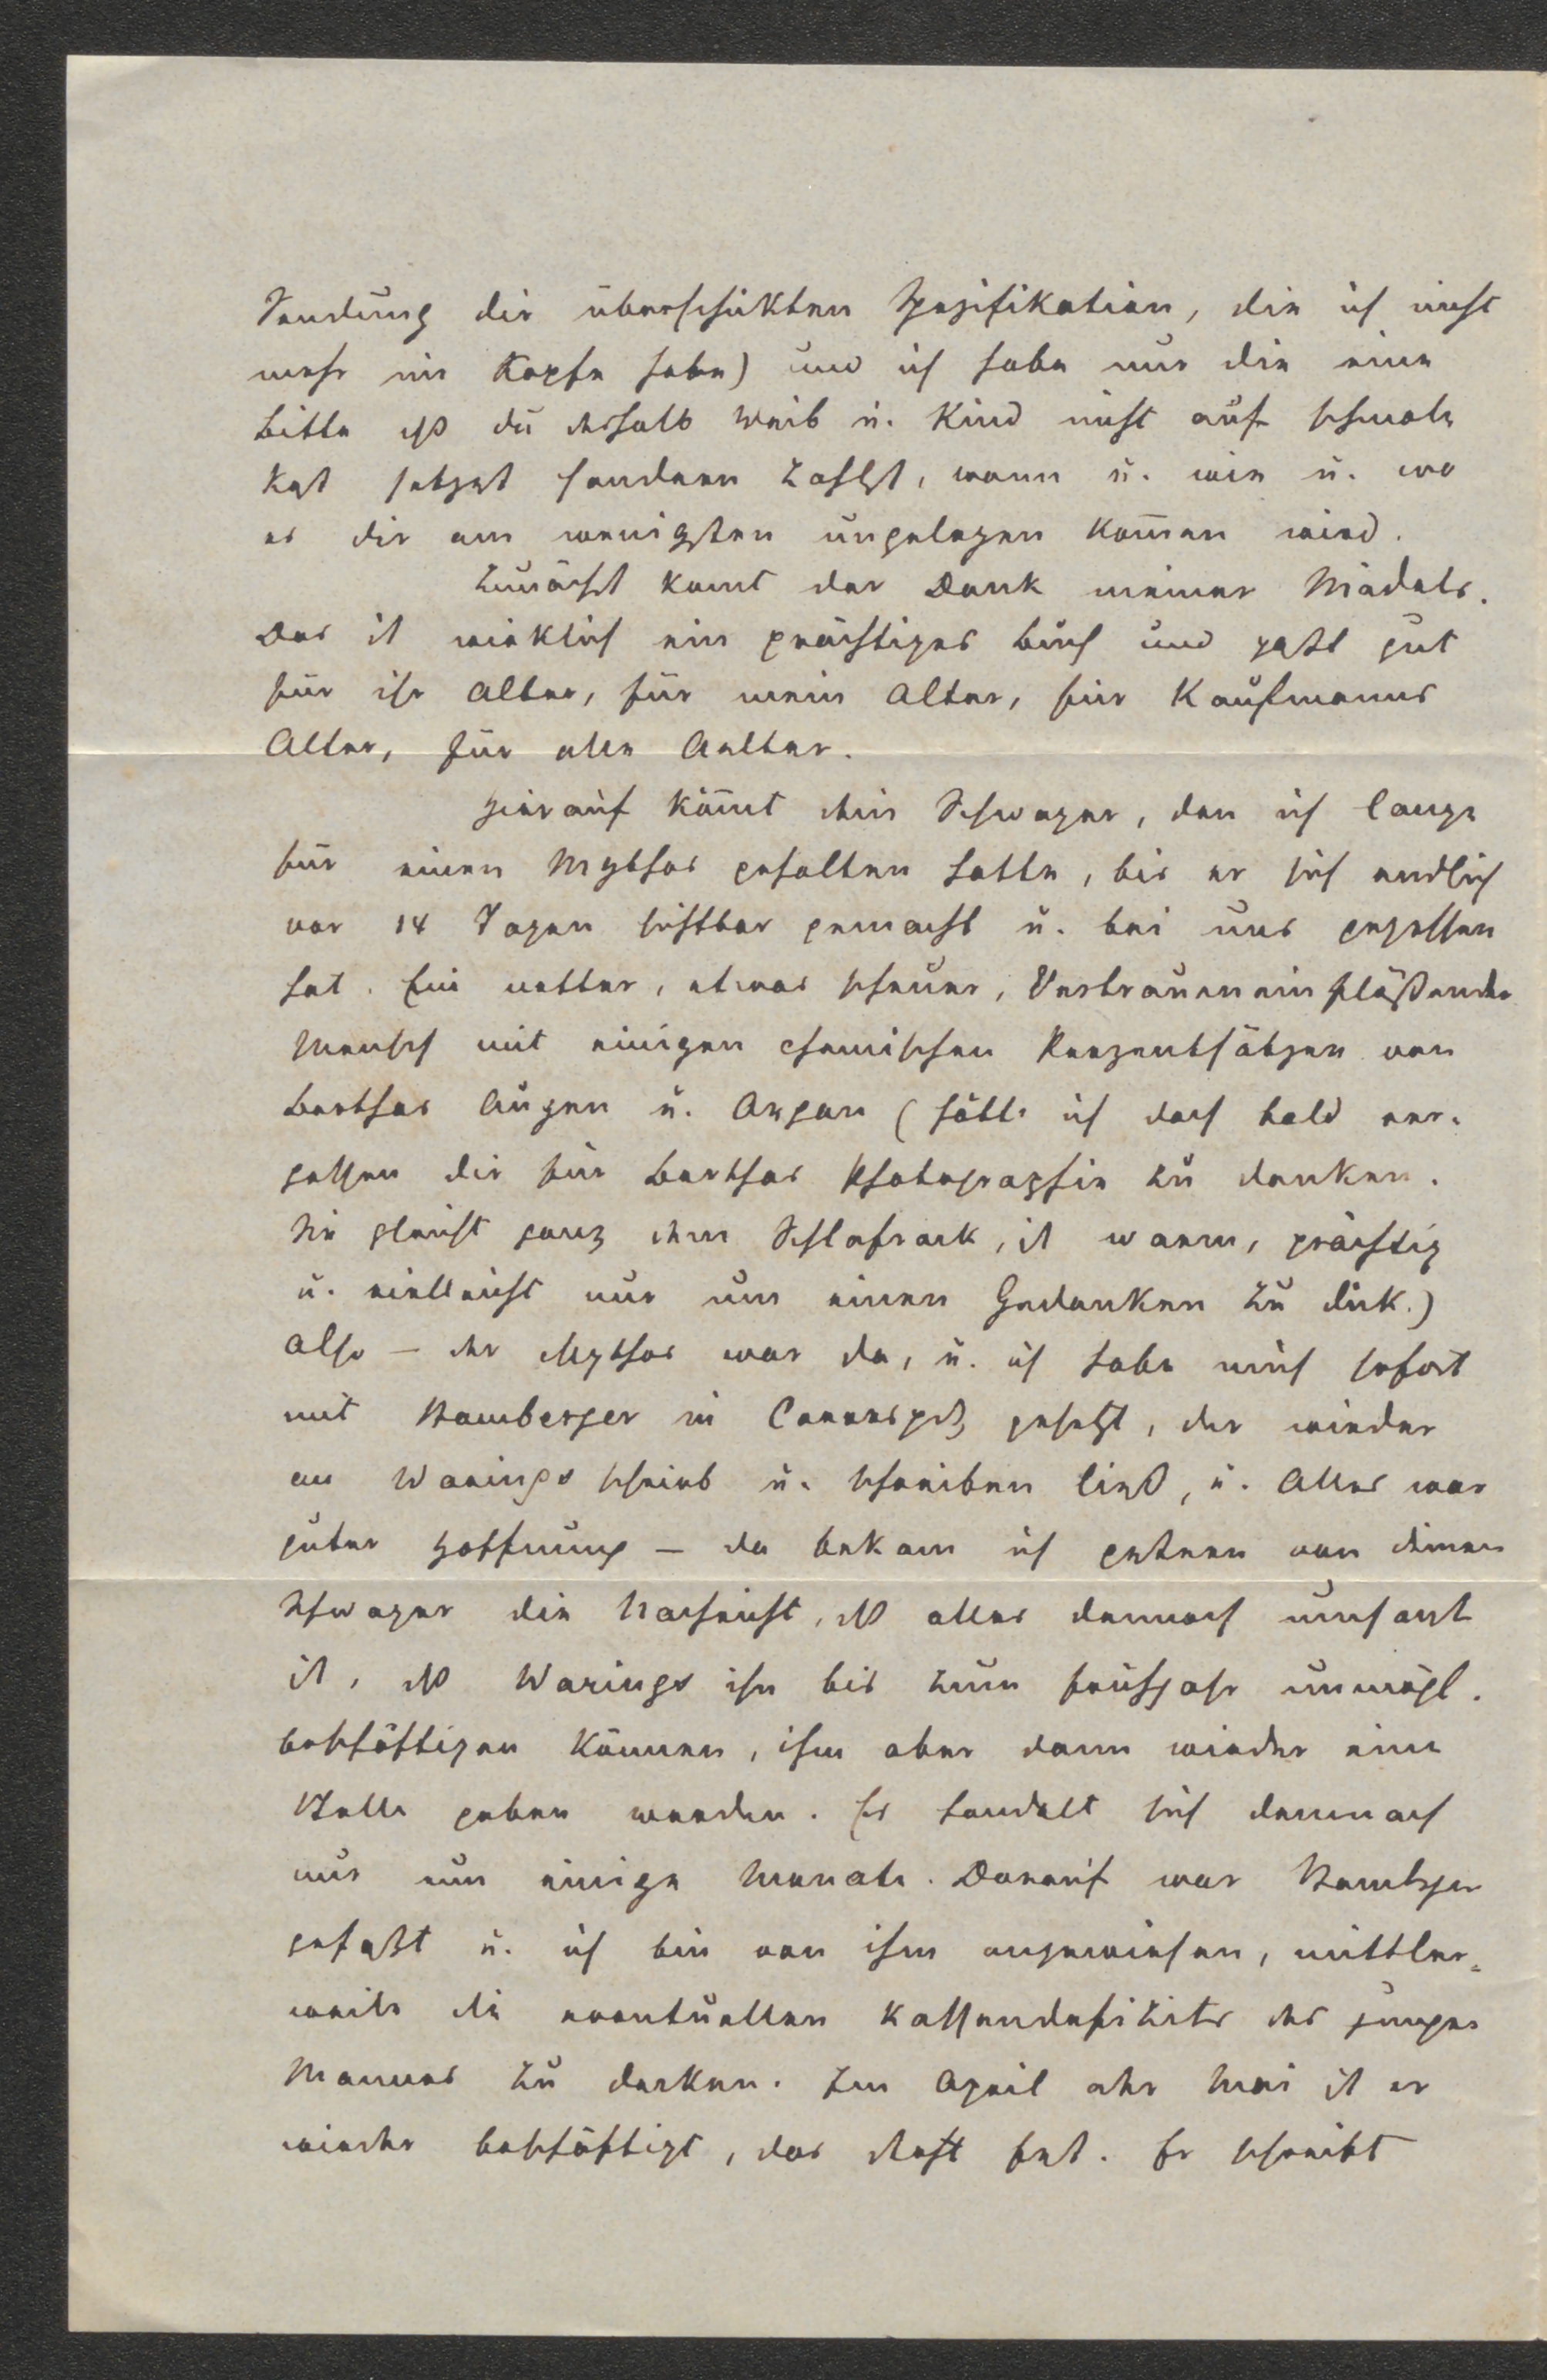 Sendung dir überschikten Spezifikation, die ich nicht
mehr im Kopfe habe) und ich habe nur die eine
Bitte daß du deshalb Weib u. Kind nicht auf schmale
Kost setzest sondern zahlst, wann u. wie u. wo
es dir am wenigsten ungelegen kom̄en wird.
Zunächst komt der Dank meiner Mädels.
Das ist wirklich ein prächtiges Buch und paßt gut
für ihr Alter, für mein Alter, für Kaufmanns
Alter, für alle Aelter.
Hierauf köm̄t dein Schwager, den ich lange
für einen Mythos gehalten hatte, bis er sich endlich
vor 14 Tagen sichtbar gemacht u. bei uns gegessen
hat. Ein netter, etwas scheuer, Vertrauen einflößender
Mensch mit einigen chemischen Perzentsätzen von
Berthas Augen u. Organ (hätte ich doch bald ver-
gessen dir für Berthas Photographie zu danken.
Sie gleicht ganz dem Schlafrock, ist warm, prächtig
u. vielleicht nur um einen Gedanken zu dick.)
Also – der Mythos war da, u. ich habe mich sofort
mit Bamberger in Corresp. gesetzt, der wieder
an Warings schrieb u. schreiben ließ, u. Alles war
guter Hoffnung – da bekam ich gestern von deinem
Schwager die Nachricht, daß alles dennoch umsonst
ist, daß Warings ihn bis zum Frühjahr unmögl.
beschäftigen können, ihm aber dann wieder eine
Stelle geben werden. Es handelt sich demnach
nur um einige Monate. Darauf war Bamberger
gefaßt u. ich bin von ihm angewiesen, mittler-
weile die eventuellen Kassendefizite des jungen
Mannes zu decken. Im April oder Mai ist er
wieder beschäftigt, das steht fest. Er schreibt